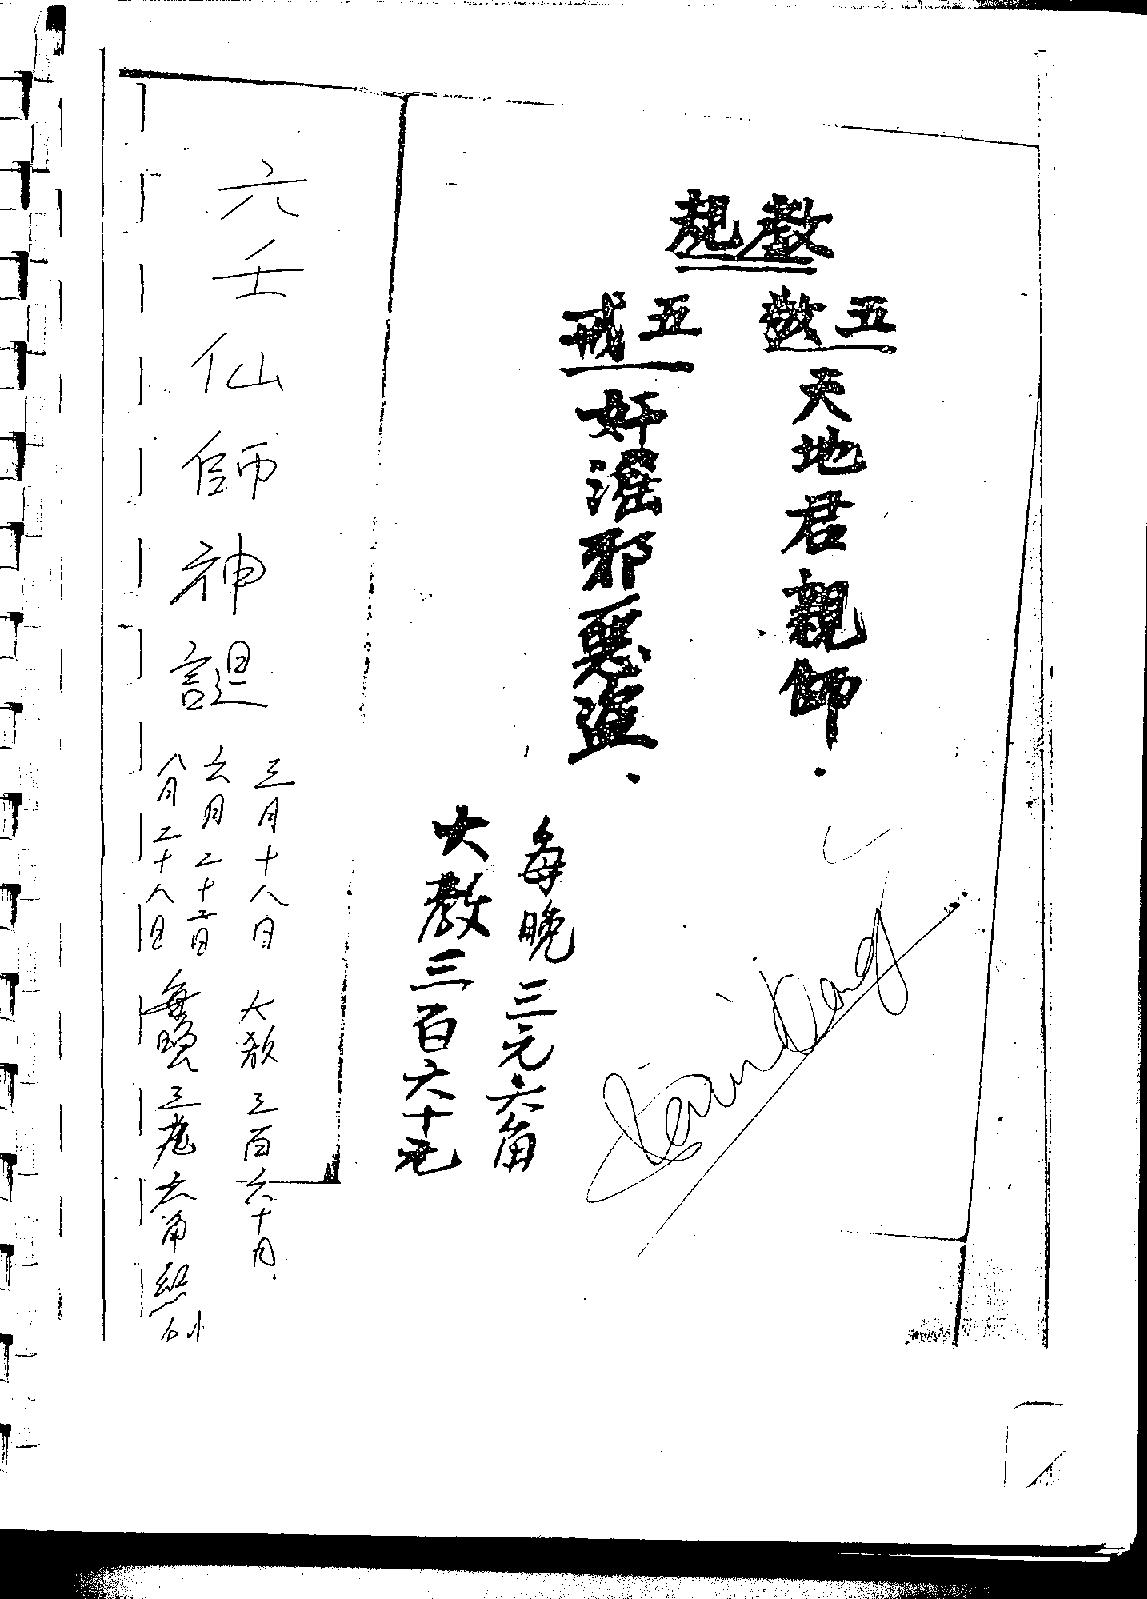 教規
五敬
天地君親師.
五戒
奸淫邪惡盜.
每晚三元六角
大教三百六十元
六壬仙師神誕
三月十八日 大教三百六十
六月二十
八月二十八日 每晚三元六角